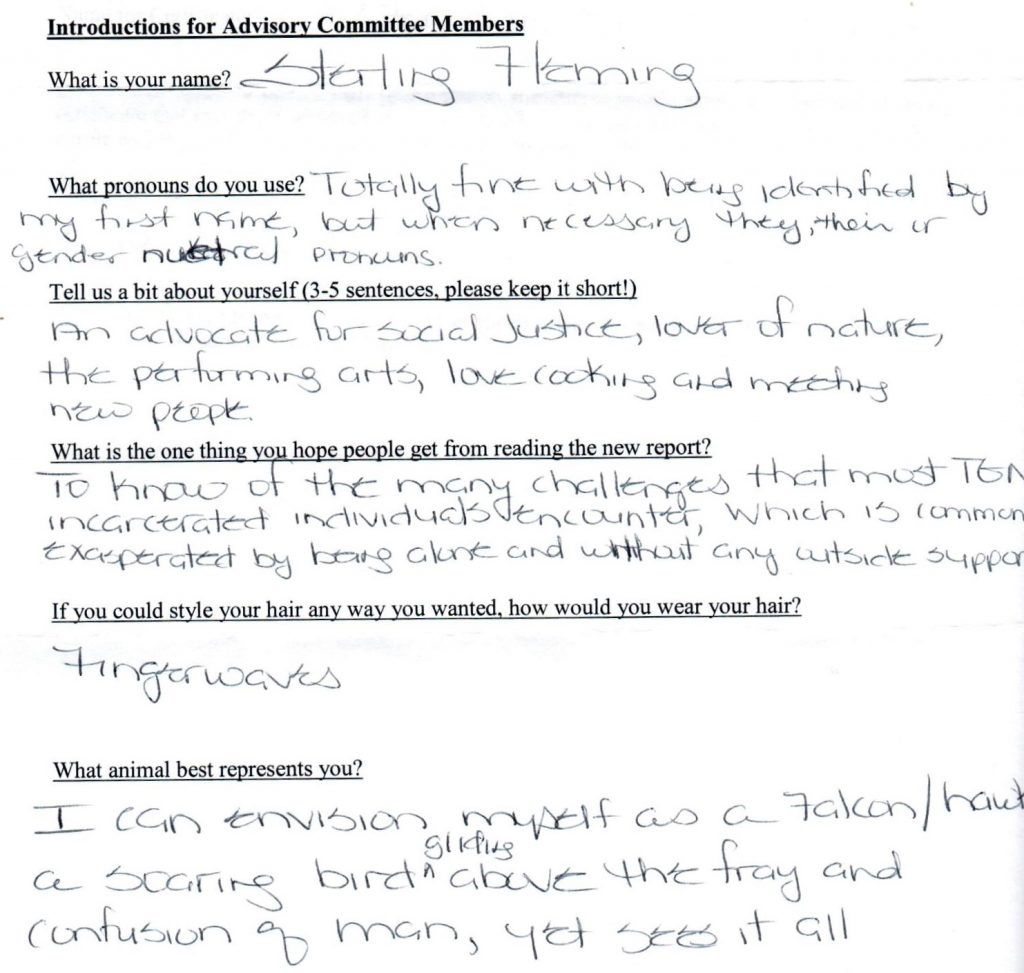 Introductions for Advisory Committee Members
What is your name? Sterling Fleming
What pronouns do you use? Totally fine with being identified by
my first name, but when necessary they, their or
gender nuetral pronouns.
Tell us a bit about yourself (3-5 sentences, please keep it short!)
An advocate for social Justice, lover of nature,
the performing arts, love cooking and meeting
new people.
What is the one thing you hope people get from reading the new report?
To know of the many challenges that most TGN
incarcerated individuals encounter, which is common
exasperated by being alone and without any outside suppor
If you could style your hair any way you wanted, how would you wear your hair?
Fingerwaves
What animal best represents you?
I can envision myself as a Falcon/hawk
a soaring bird gliding above the fray and
confusion of man, yet sees it all